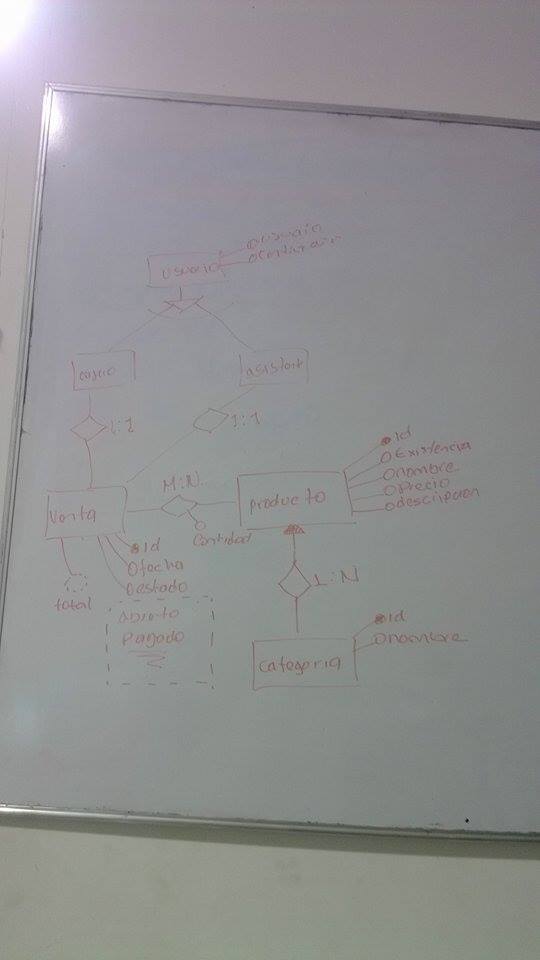 usuario
cajero
asistent
1:1
1:1
M:N.
Venta
producto
Cantidad
id
Existencia
nombre
Precio
descripcion
id
fecha
estado
total
Abierto
Pagado
1:N
categoria
id
nombre